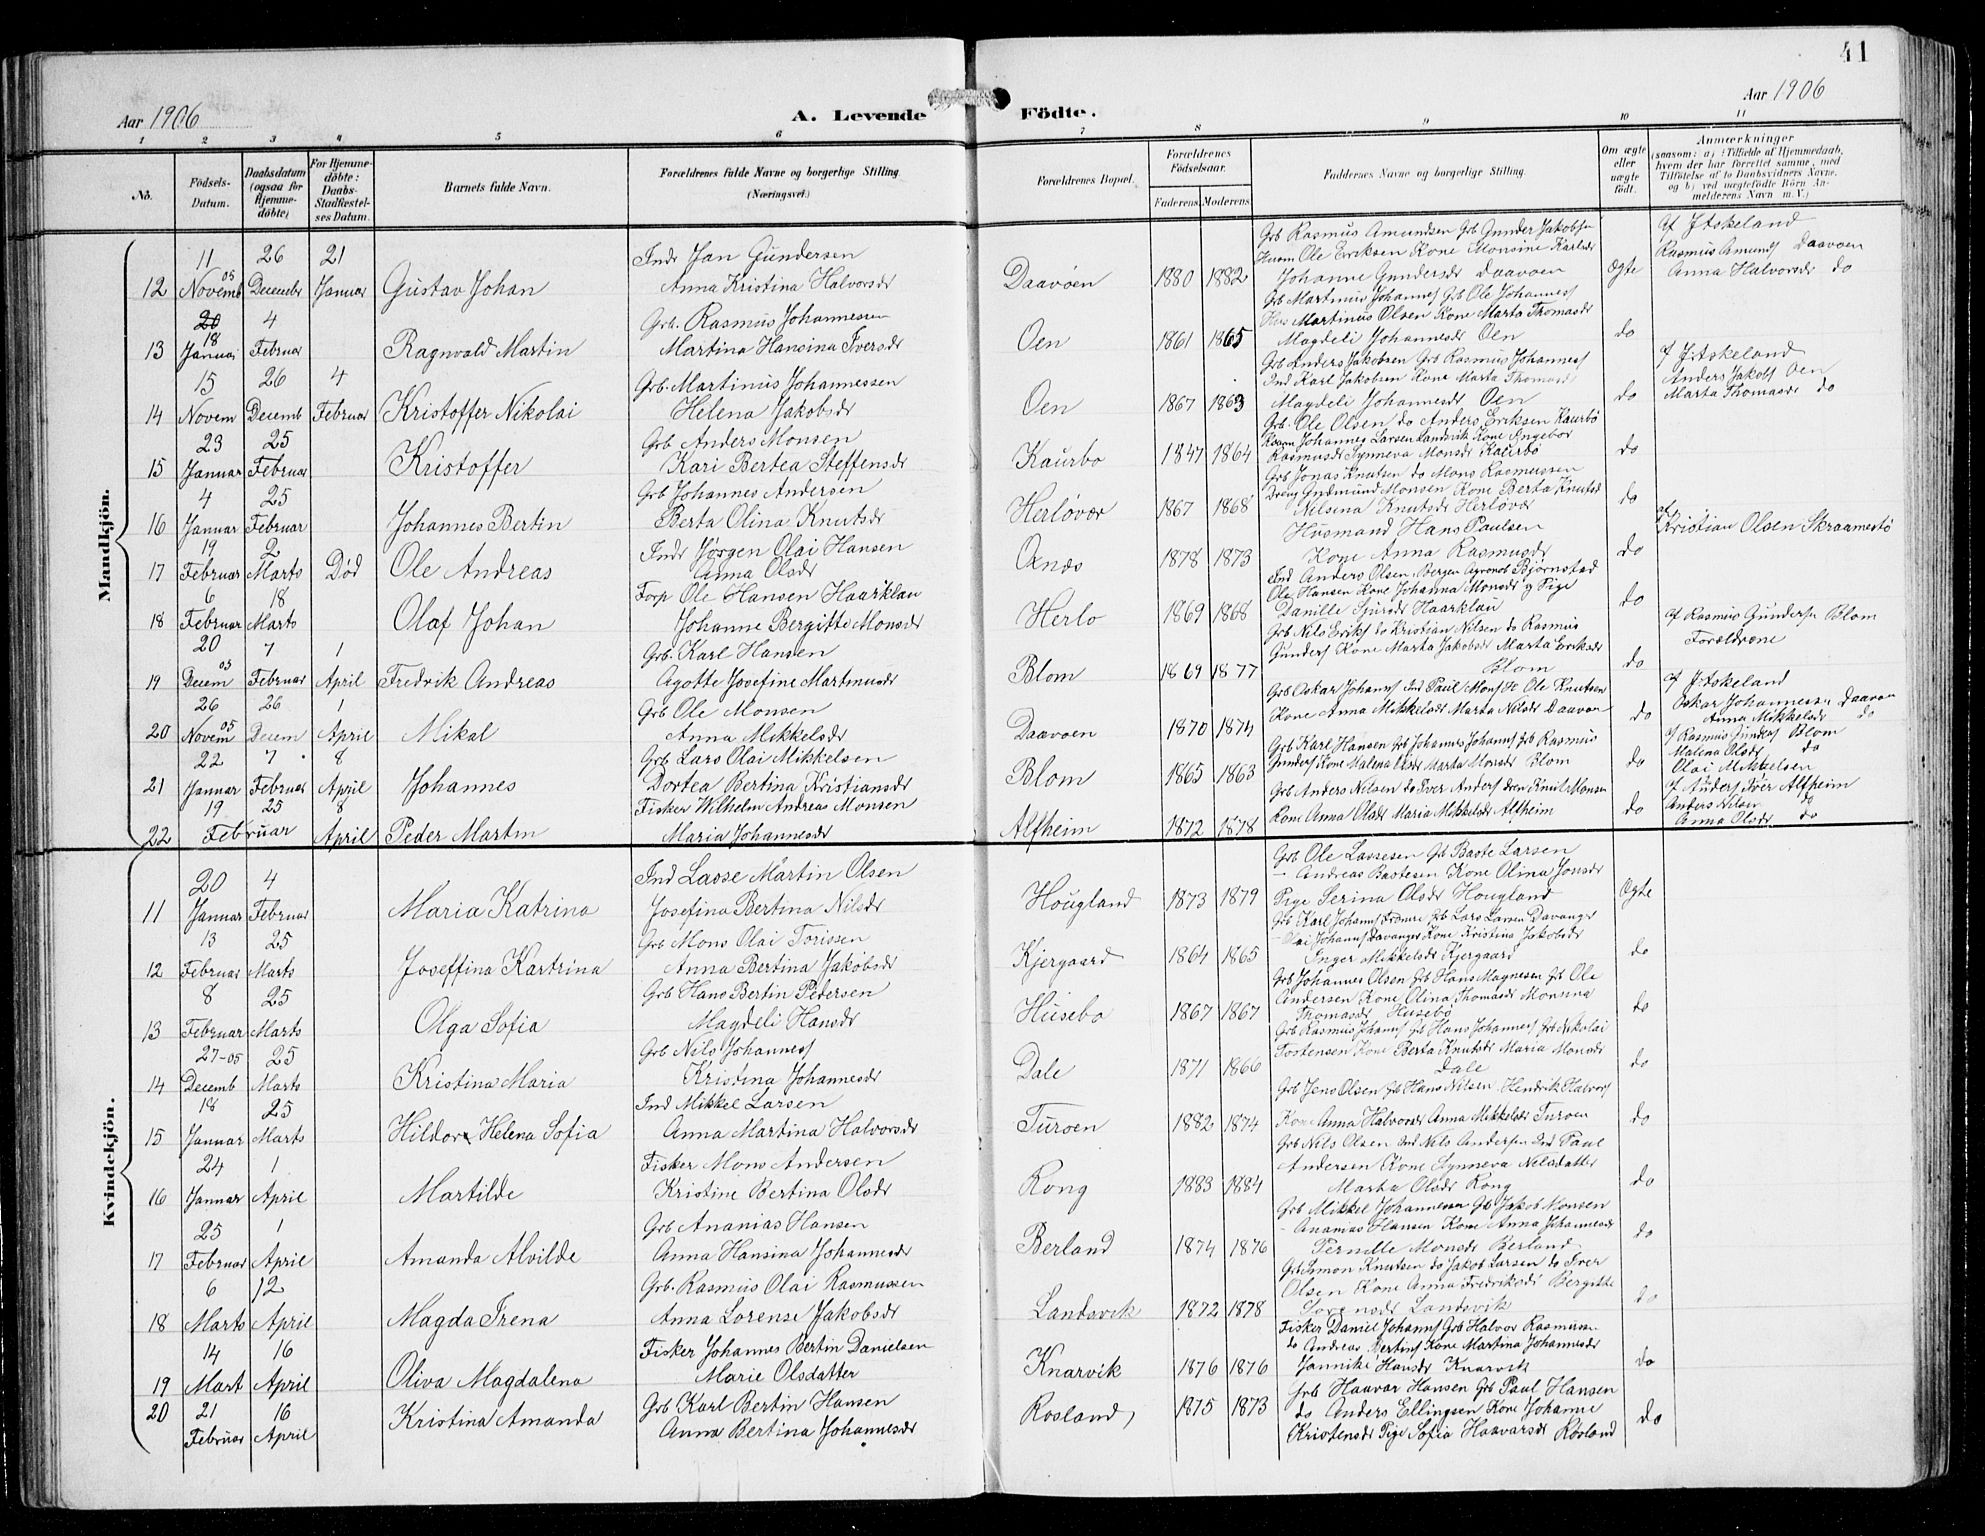 41
Aar 1906
A. Levende Födte.
Aar 1906
1 2 3 4 5 6 7 8 9 10 11
No.
Födsels-Datum.
Daabsdatum (ogsaa for Hjemme-döbte)
For Hjemme-döbte: Daabs-Stadfæstel-ses Datum.
Barnets fulde Navn.
Forældrenes fulde Navne og borgerlige Stilling (Næringsvei.)
Forældrenes Bopæl.
Forældrenes Födselsaar.
Faderens Moderens
Faddernes Navne og borgerlige Stilling.
Om ægte eller uægte födt.
Anmærkninger
(saasom: a) i Tilfælde af Hjemmedaab, hvem der har forrettet samme, med Tilföielse af to Daabsvidners Navne. og b) ved uægtefödte Börn An-melderens Navn m. V.)
Mandkjön.
12 11 Novemb 05 26 December 21 Januar Gustav Johan
Indr Jan Gundersen
Anna Kristina Halvorsdr
Daavöen 1880 1882
Grb Rasmus Amundsen Grb Gunder Jakobsen
Husm Ole Eriksen Kone Monsine Karlsdr
Johanne Gundersdr Daavoen
Ægte
af J Askeland
Rasmus Amunds Daavoen
Anna Halvorsdr do
13 20 18 Januar 4 Februar Ragnvald Martin
Grb. Rasmus Johannessen
Martina Hansina Iversdr
Oen 1861 1865
Grb Martinus Johannes Grb Ole Johannes
Hus Martinus Olsen Kone Marta Thomasdr
Magdeli Johannesdr Oen
do
14 15 Novem 26 Decemb 4 Februar Kristoffer Nikolai
Grb. Martinus Johannessen
Helena Jakobsdr
Oen 1867 1863
Grb Anders Jakobsen Grb Rasmus Johannes
Ind Karl Jakobsen Kone Marta Thomasdr
Magdeli Johannesdr Oen
do
af J Askeland
Anders Jakobs Oen
Marta Thomasdr do
15 23 Januar 25 Februar Kristoffer
Grb Anders Monsen
Kari Bertea Steffensdr
Kaurbo 1847 1864
Grb. Ole Olsen do Anders Eriksen Kaurbö
Johannes Larsen Landsvik Kone Ingebor
Rasmusdr Synneva Monsdr Kaurbö
do
16 4 Januar 25 Februar Johannes Bertin
Grb Johannes Andersen
Berta Olina Knutsdr
Herlövær 1867 1868
Grb Jonas Knutsen do Mons Rasmussen
Dreng Gudmund Monsen Kone Berta Knutsd
Nilsina Knutsdr Herlövær
do
17 19 Februar 2 Marts Död Ole Andreas
Indr Jörgen Olai Hansen
Anna Olsdr
Oxnæs 1878 1873
Husmand Hans Paulsen
Kone Anna Rasmusdr
do
af Kristian Olsen Skraamestö
18 6 Februar 18 Marts Olaf Johan
Forp Ole Hansen Haarklau
Johanne Bergitte Monsdr
Herlo 1869 1868
Ind Anders Olsen, Bergen Agronob Björnstad
Ole Hansen Kone Johanna Monsdr og Pige
Danille Haarklau
do
19 20 Decem 05 7 Februar 1 April Fredrik Andreas
Grb. Karl Hansen
Agotte Josefine Martinusdr
Blom 1869 1877
Grb Nils Eriks do Kristian Nilsen do Rasmus
Gunders Kone Marta Jakobsdr Marta Eriksdr
Blom
do
af Rasmus Gunders Blom
Foreldrene
20 26 Novem 05 26 Decem 1 April Mikal
Grb Ole Monsen
Anna Mikkelsdr
Daavoen 1870 1874
Grb Oskar Johanns Ind Paul Mons H Ole Knutsen
Kone Anna Mikkelsdr Marta Nilsdr Daavoen
do
af J Askeland
Oskar Johannessn Daavoen
Anna Mikkelsdr do
21 22 Januar 7 Februar 8 April Johannes
Grb Lars Olai Mikkelsen
Dortea Bertina Kristiansdr
Blom 1865 1863
Grb Karl Hansen Grb Johannes Johanns Grb Rasmus
Gunders Kone Malena Olsdr Marta Monsdr Blom
do
af Rasmus Gunders Blom
Malena Olsdr do
Olai Mikkelsen
22 19 Februar 25 8 April Peder Martin
Fisker Wilhelm Andreas Monsen
Maria Johannesdr
Alfheim 1872 1878
Grb Anders Nilsen do Iver Anders dren Knut Monsen
Kone Anna Olsdr Maria Mikkelsdr Alfheim
do
af Anders Iver Alfheim
Anders Nilsen do
Anna Olsdr do
Kvindekjön.
11 20 Januar 4 Februar Maria Katrina
Ind Lasse Martin Olsen
Josefina Bertina Nilsdr
Hougland 1873 1879
Grb Ole Lassesen Gb Baste Larsen
- Andreas Bastesen Kone Olina Jonsdr
Pige Serina Olsdr Hougland
Ægte
12 13 Februar 25 Marts Joseffina Kartrina
Grb Mons Olai Torissen
Anna Bertina Jakobsdr
Kjergaard 1864 1865
Grb Karl Johanns Gb Lars Larsen Davanger
- Olai Johanns Davanger Kone Kristina Jakobsdr
Inger Mikkelsdr Kjergaard
do
13 8 Februar 25 Marts Olga Sofia
Grb Hans Bertin Pedersen
Magdeli Hansdr
Husebo 1867 1867
Grb Johannes Olsen Gb Hans Magnesen Gb Ole
Andersen Kone Olina Thomasdr Monina
Thomasdr Husebö
do
14 27-05 Decemb 25 Marts Kristina Maria
Grb Nils Johannes
Kristina Johannesdr
Dale 1871 1866
Grb Rasmus Johanns Gb Hans Johannes Grb Nikolai
Tostensen Kone Berta Knutsdr Maria Monsdr
Dale
do
15 18 Januar 25 Marts Hildor Helena Sofia
Ind Mikkel Larsen
Anna Martina Halvorsdr
Turoen 1882 1874
Grb Jens Olsen Gb Hans Nilsen Hendrik Halvors
Kone Anna Halvorsdr Anna Mikkelsdr Turoen
do
16 24 Januar 1 April Martilde
Fisker Mons Andersen
Kristine Bertina Olsdr
Rong 1883 1884
Grb Nils Olsen Ind Nils Andersen Ind Paul
Andersen Kone Synneva Nelsdatter
Marta Olsdr Rong
do
17 25 Februar 1 April Amanda Alvilde
Grb Ananias Hansen
Anna Hansina Johannesdr
Berland 1874 1876
Grb Mikkel Johannessn Gb Jakob Monsen
- Ananias Hansen Kone Anna Johannesdr
Pernille Monsdr Berland
do
18 6 Marts 12 April Magda Irena
Grb. Rasmus Olai Rasmussen
Anna Lorense Jakobsdr
Landsvik 1872 1878
Grb Simon Knutsen do Jakob Larsen do Iver
Olsen Kone Anna Fredriksdr Bergitte
Sorensdr Landsvik
do
19 14 Mart 16 April Oliva Magdalena
Fisker Johannes Bertin Danielsen
Marie Olsdatter
Knarvik 1876 1876
Fisker Daniel Johanns Grb Halvor Rasmussen
do Andreas Bertins Kone Martina Johannesdr
Jannike Hansdr Knarvik
do
20 21 Februar 16 April Kristina Amanda
Grb Karl Bertin Hansen
Anna Bertina Johannesdr
Rosland, 1875 1873
Grb Haavar Hansen Grb Paul Hansen
do Anders Ellingsen Kone Johanne
Kristensdr Pige Sofia Haavarsdr Rosland
do